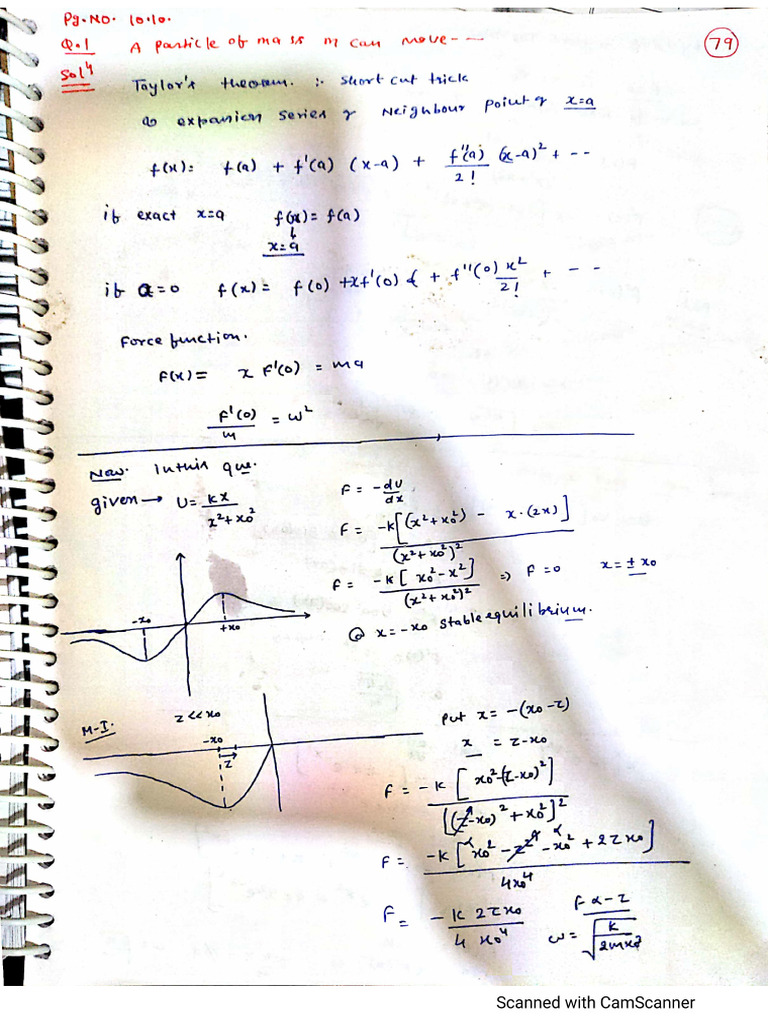 Pg.NO. 10.10.
Q.1 A particle of mass m can move--
79
Solⁿ
Taylor's theorem. :- short cut trick
expansion series & Neighbour point of x=a
f(x): f(a) + f'(a) (x-a) + f''(a)/2! (x-a)² + --
if exact x=a f(x)= f(a)
x=a
if a=0 f(x)= f(0) +xf'(0) + f''(0) x²/2! + --
Force function.
F(x)= x F'(0) = ma
F'(0)/m = ω²
Now. In this que.
given → U= kx/(x²+x₀²)
F = -dU/dx
F= -k[(x²+x₀²) - x.(2x)]/(x²+x₀²)²
F= -k[x₀²-x²]/(x²+x₀²)² ⇒ F=0 x=±x₀
@ x=-x₀ stable equilibrium.
-x₀ +x₀
M-I. z<<x₀
-x₀
z
Put x= -(x₀-z)
x = z-x₀
F= -k[x₀²-(z-x₀)²]/[(z-x₀)²+x₀²]²
F= -k[x₀²-z²-x₀²+2zx₀]/4x₀⁴
F= -k2zx₀/4x₀⁴
F∝-z
ω= √(k/2mx₀³)
Scanned with CamScanner